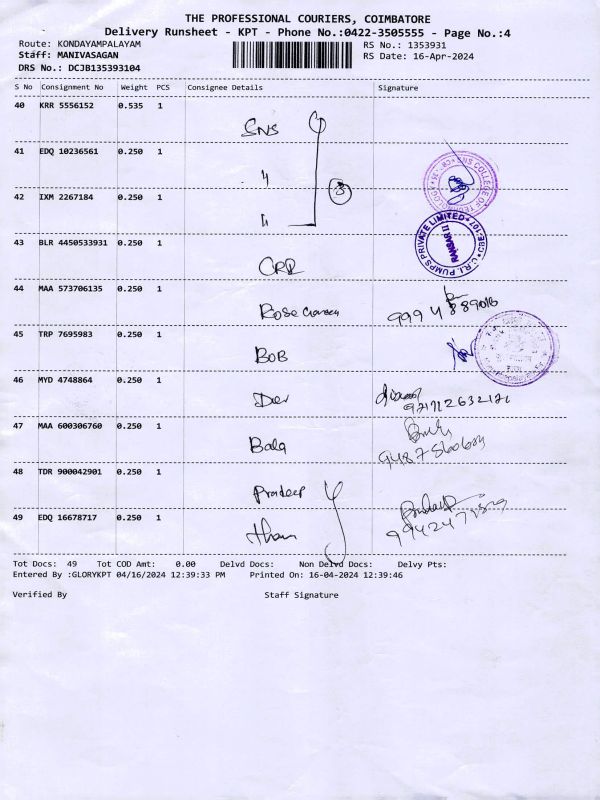 THE PROFESSIONAL COURIERS, COIMBATORE
Delivery Runsheet - KPT - Phone No.:0422-3505555 - Page No.:4
Route: KONDAYAMPALAYAM RS No.: 1353931
Staff: MANIVASAGAN RS Date: 16-Apr-2024
DRS No.: DCJB135393104
S No Consignment No Weight PCS Consignee Details Signature
40 KRR 5556152 0.535 1
SNS
41 EDQ 10236561 0.250 1
42 IXM 2267184 0.250 1
3
43 BLR 4450533931 0.250 1
C.R.I. PUMPS PRIVATE LIMITED
44 MAA 573706135 0.250 1
45 TRP 7695983 0.250 1
BOB
46 MYD 4748864 0.250 1
47 MAA 600306760 0.250 1
Bala
48 TDR 900042901 0.250 1
Pradeep
49 EDQ 16678717 0.250 1
Tot Docs: 49 Tot COD Amt: 0.00 Delvd Docs: Non Delvd Docs: Delvy Pts:
Entered By :GLORYKPT 04/16/2024 12:39:33 PM Printed On: 16-04-2024 12:39:46
Verified By Staff Signature